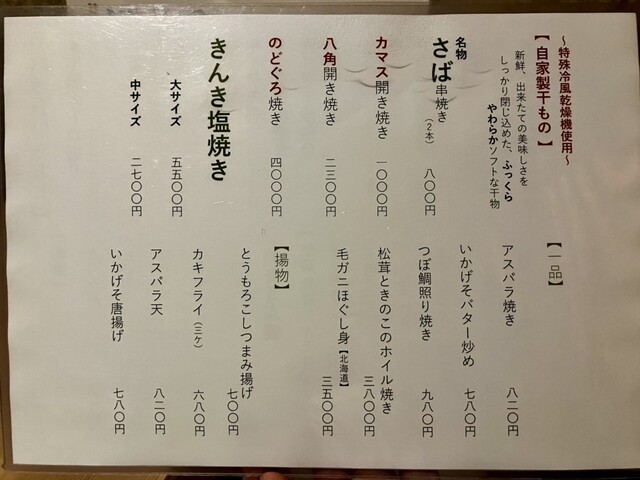 ～特殊冷風乾燥機使用～
【自家製干もの】
新鮮、出来たての美味しさを
しっかり閉じ込めた、ふっくら
やわらかソフトな干物
名物
さば串焼き(2本) 八〇〇円
カマス開き焼き 一〇〇〇円
八角開き焼き 二三〇〇円
のどぐろ焼き 四〇〇〇円
きんき塩焼き
大サイズ 五五〇〇円
中サイズ 二七〇〇円
【一品】
アスパラ焼き 八二〇円
いかげそバター炒め 七八〇円
つぼ鯛照り焼き 九八〇円
松茸ときのこのホイル焼き 三八〇〇円
毛ガニほぐし身【北海道】 三五〇〇円
【揚物】
とうもろこしつまみ揚げ 七〇〇円
カキフライ(三ケ) 六八〇円
アスパラ天 八二〇円
いかげそ唐揚げ 七八〇円